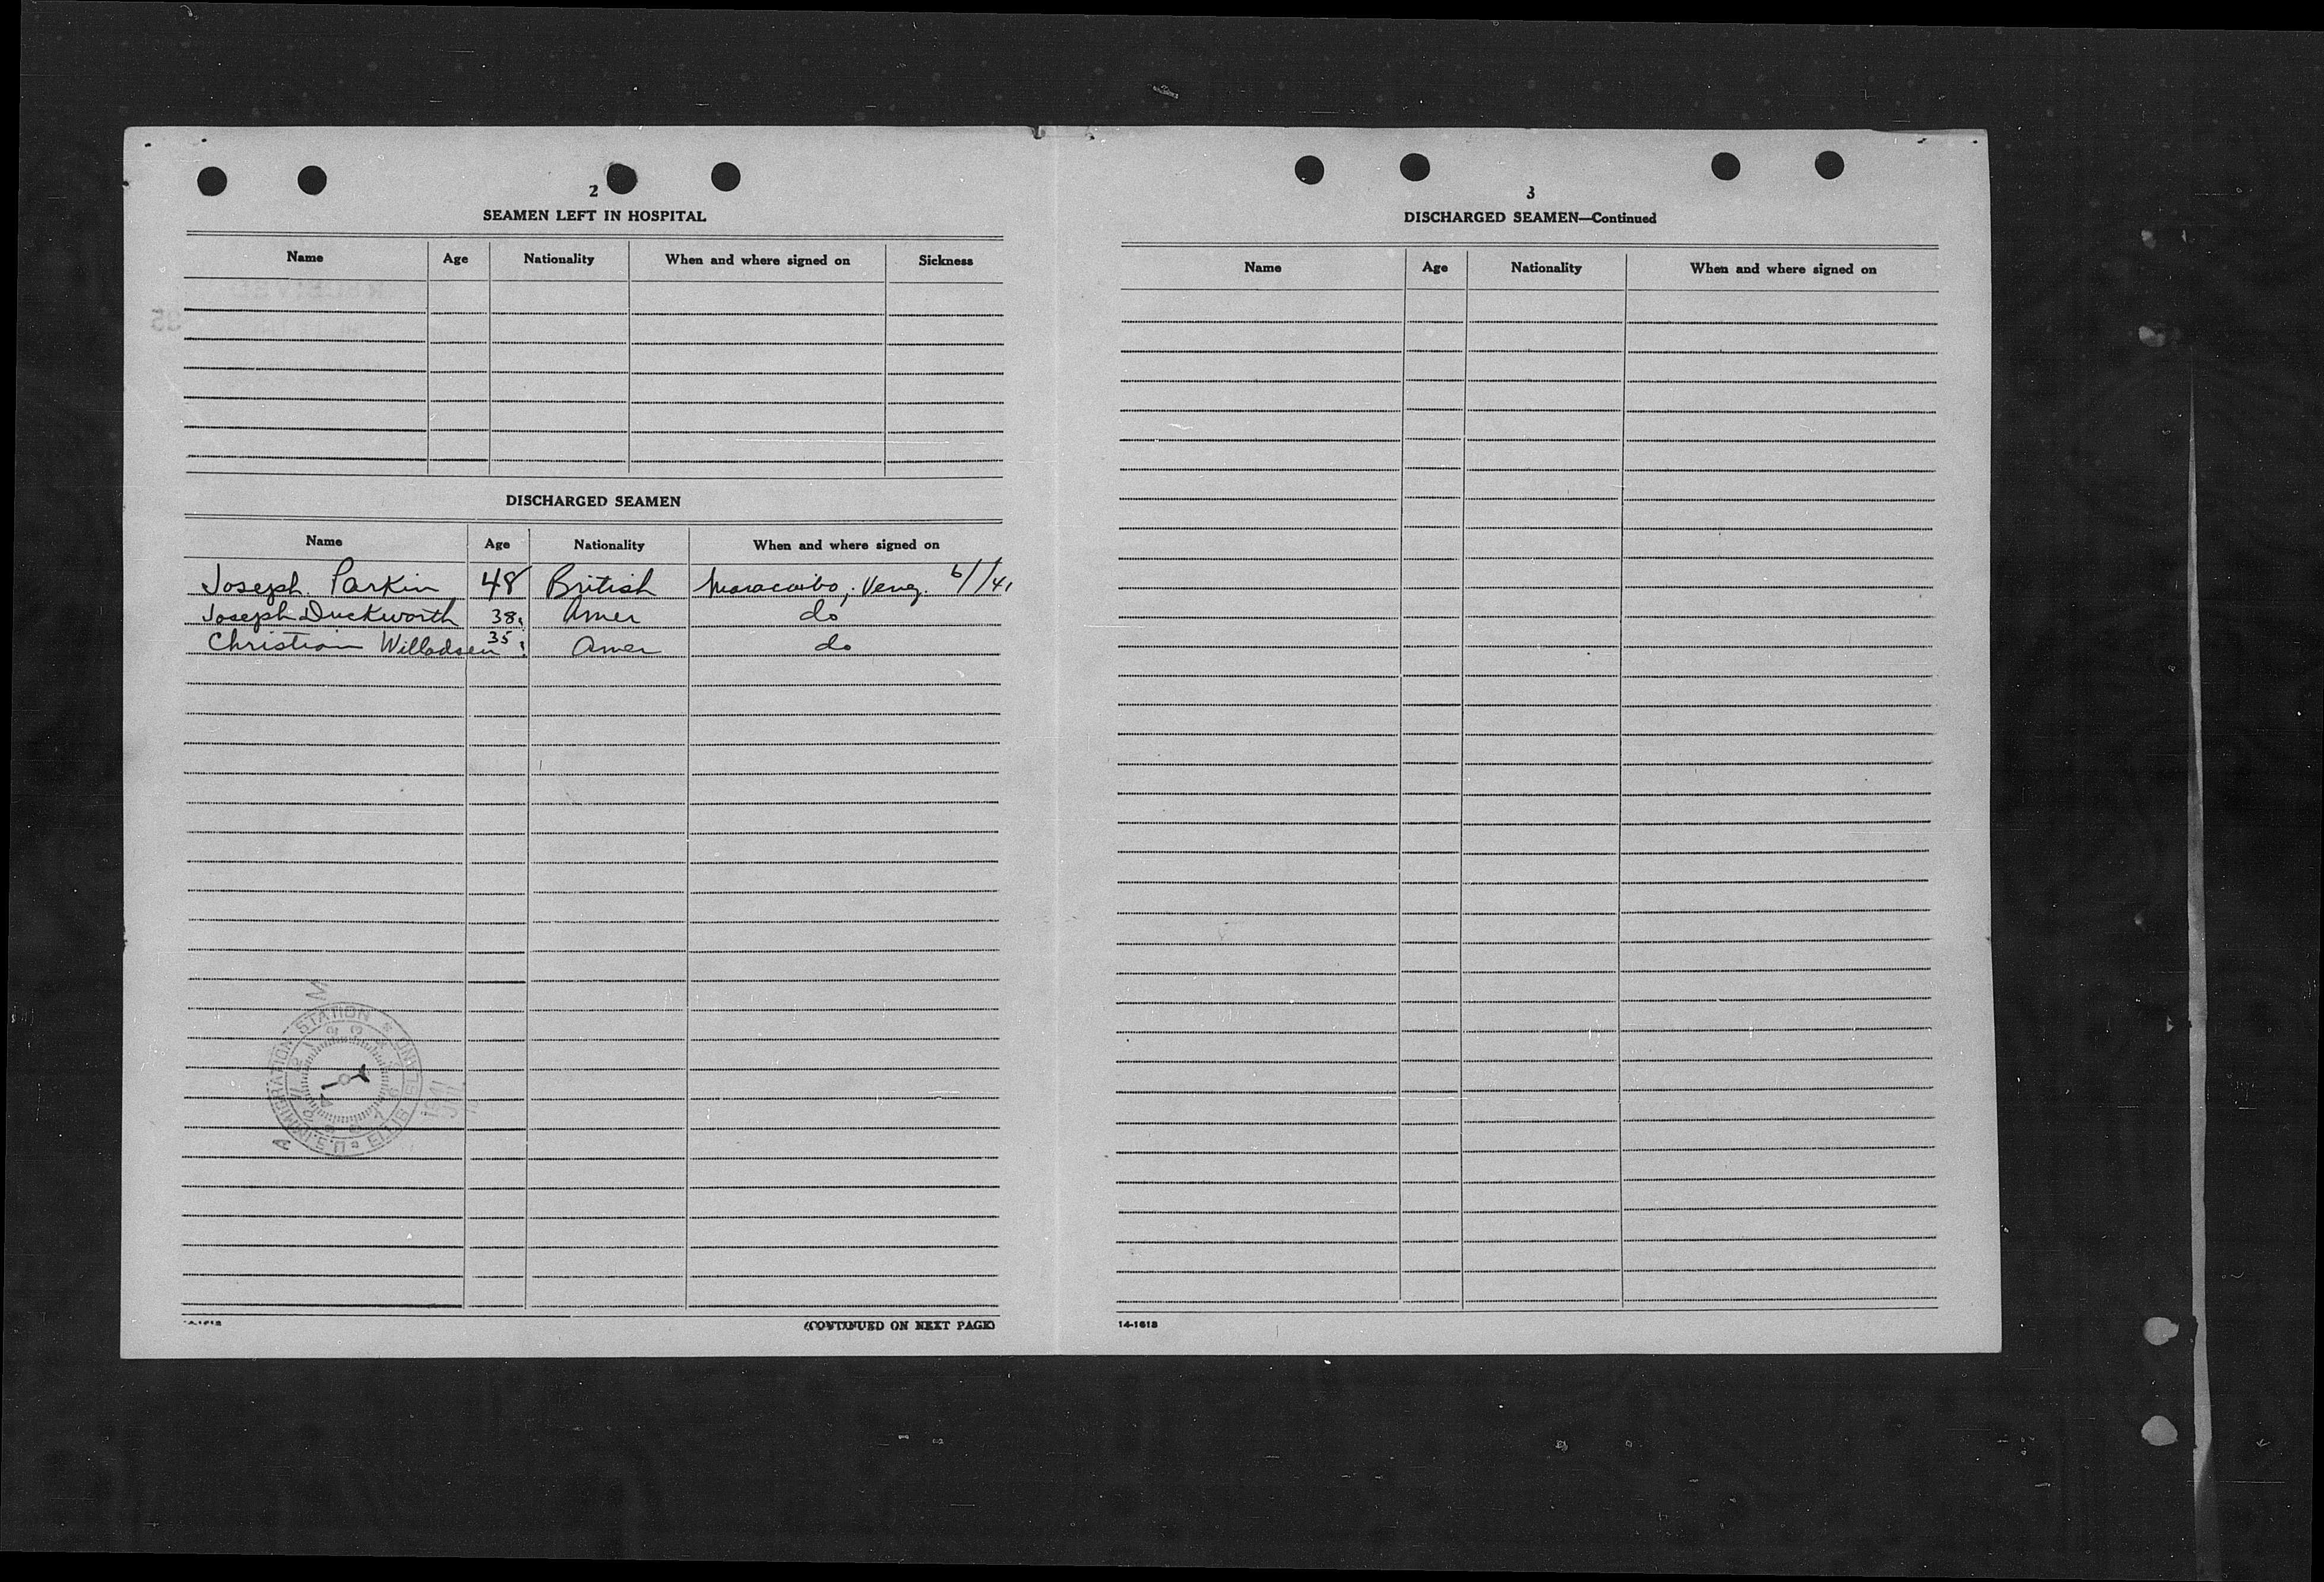 2
SEAMEN LEFT IN HOSPITAL
Name Age Nationality When and where signed on Sickness
DISCHARGED SEAMEN
Name Age Nationality When and where signed on
Joseph Parkin 48 British Maracaibo, Venez. 6/1/41
Joseph Duckworth 38 Amer do
Christian Willadsen 35 Amer do
U.S. IMMIGRATION STATION * ELLIS ISLAND
1941
(CONTINUED ON NEXT PAGE)
3
DISCHARGED SEAMEN—Continued
Name Age Nationality When and where signed on
14-1618